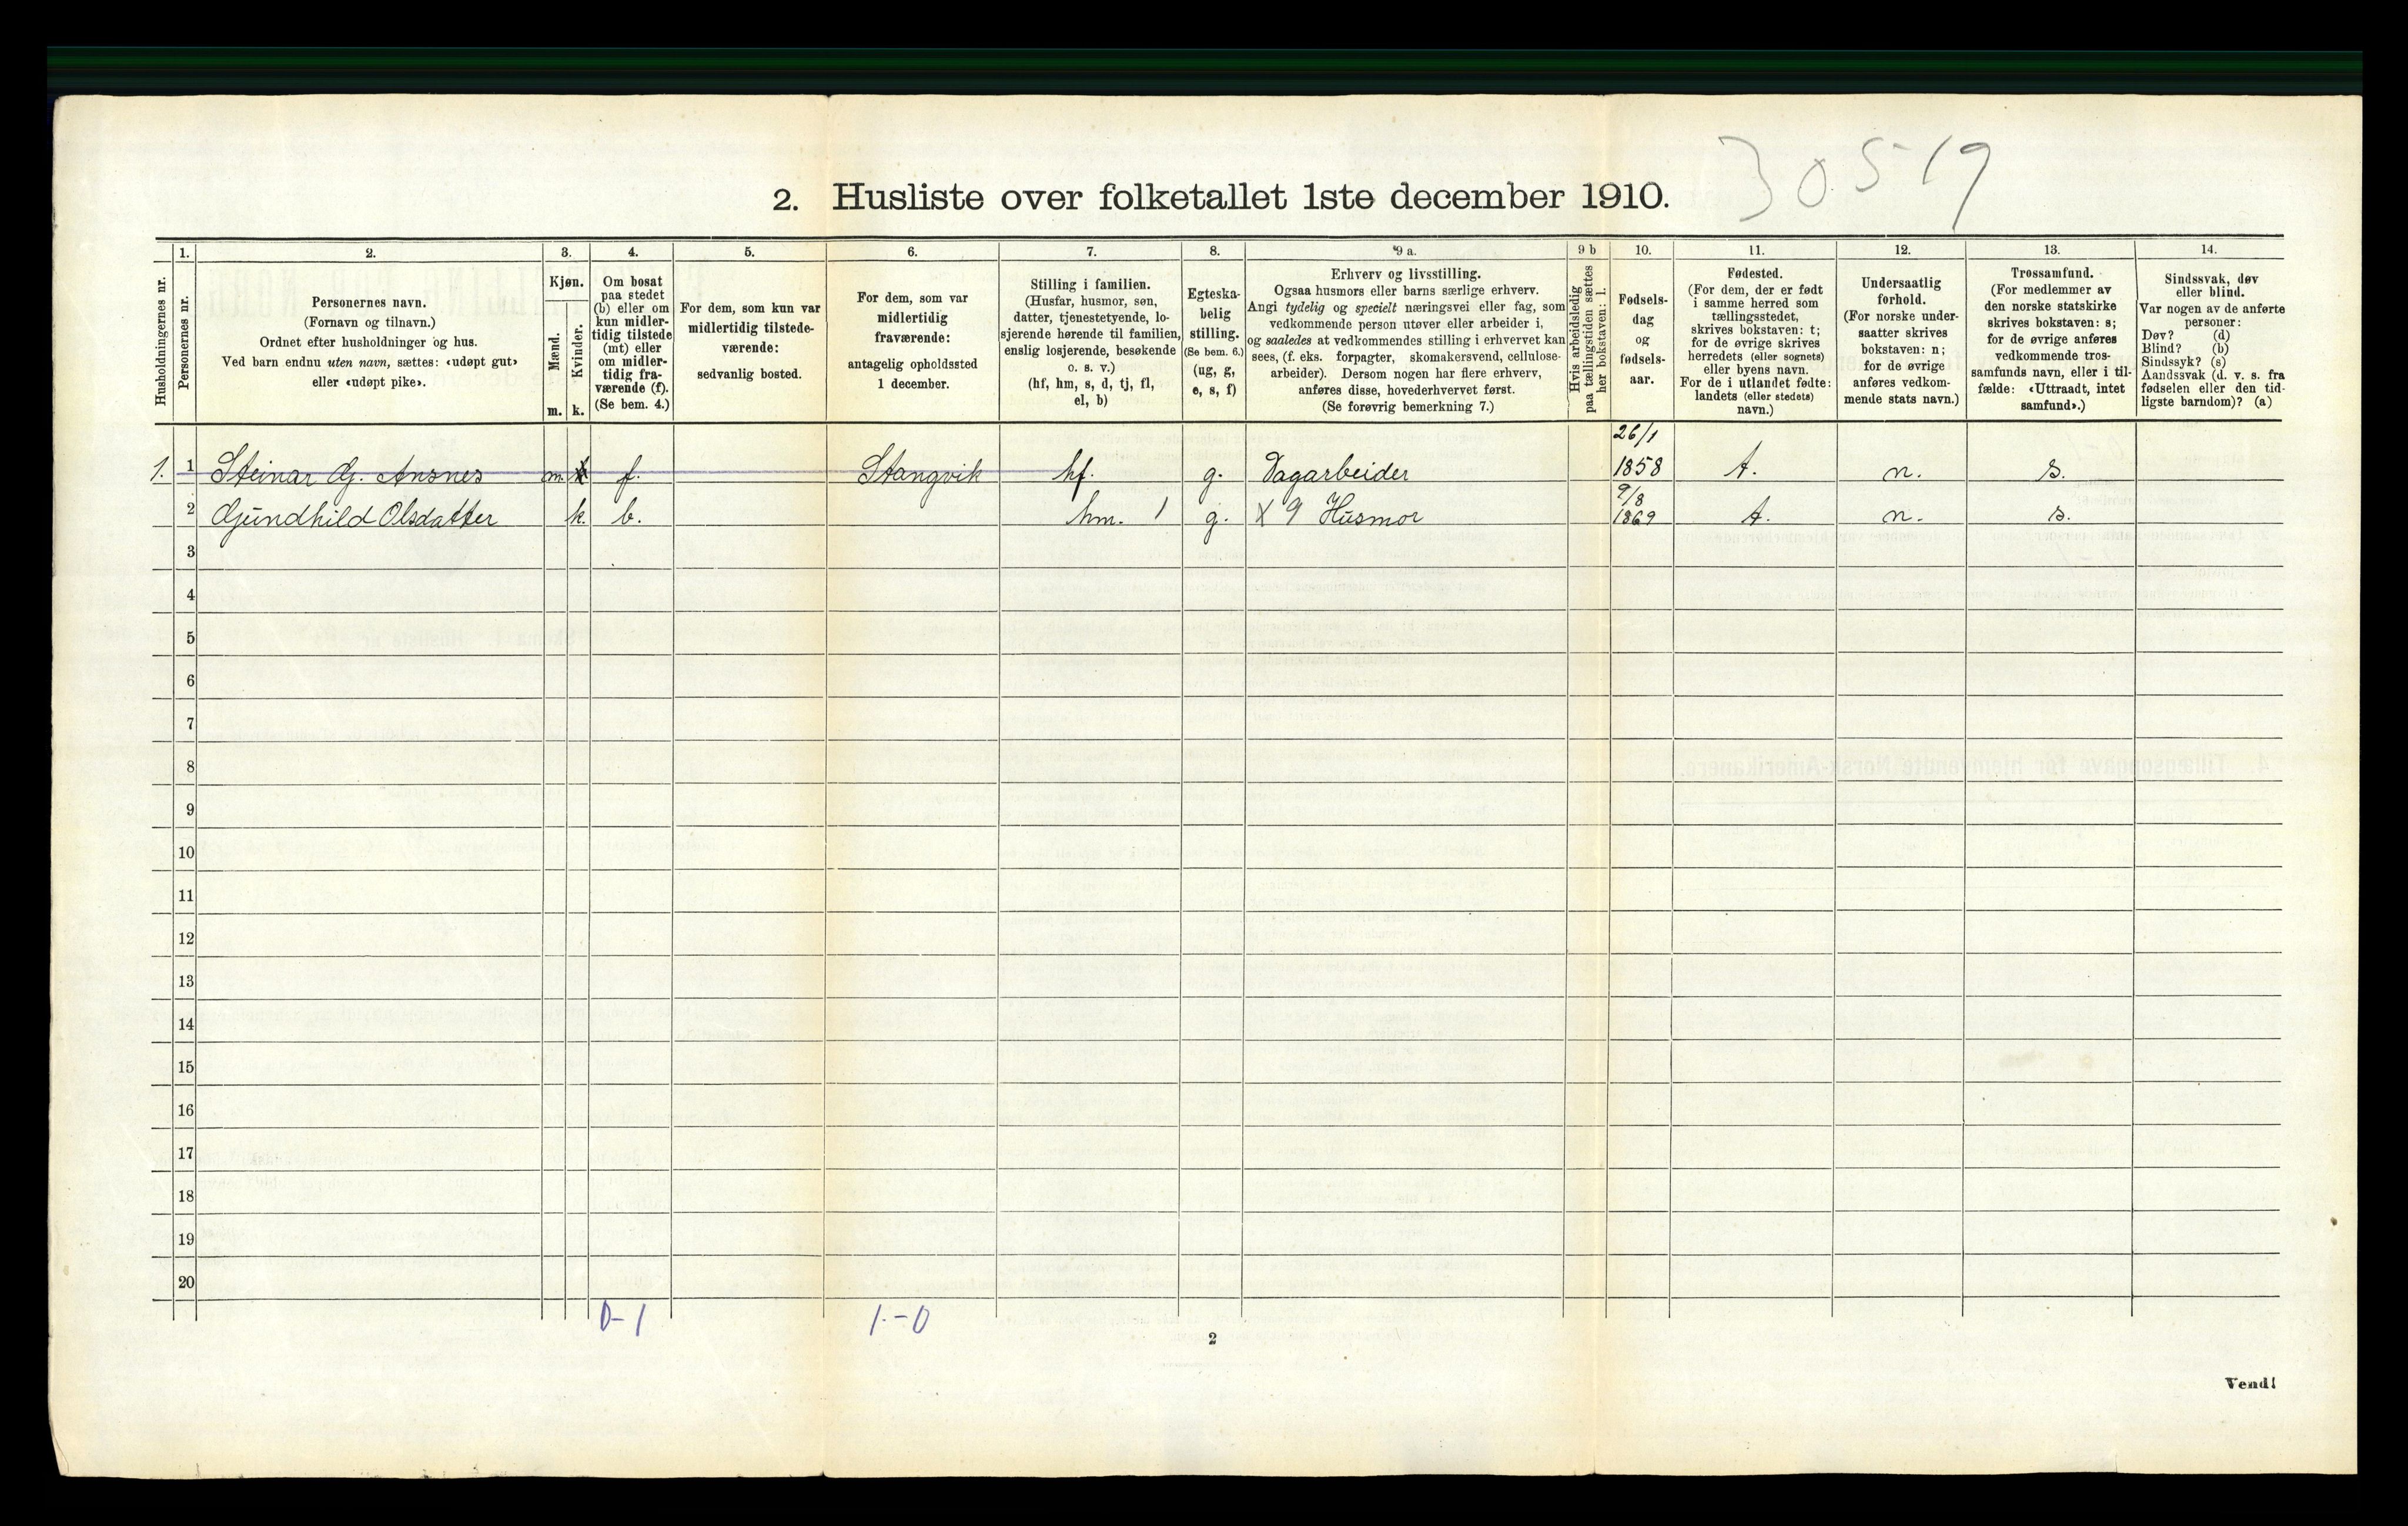 30519
2. Husliste over folketallet 1ste december 1910.
Husholdningernes nr.
1.
Personernes nr.
2.
Personernes navn.
(Fornavn og tilnavn.)
Ordnet efter husholdninger og hus.
Ved barn endnu uten navn, sættes: «udøpt gut»
eller «udøpt pike».
3.
Kjøn.
Mænd.
Kvinder.
m. k.
4.
Om bosat
paa stedet
(b) eller om
kun midler-
tidig tilstede
(mt) eller
om midler-
tidig fra-
værende (f).
(Se bem. 4.)
5.
For dem, som kun var
midlertidig tilstede-
værende:
sedvanlig bosted.
6.
For dem, som var
midlertidig
fraværende:
antagelig opholdssted
1 december.
7.
Stilling i familien.
(Husfar, husmor, søn,
datter, tjenestetyende, lo-
sjerende hørende til familien,
enslig losjerende, besøkende
o. s. v.)
(hf, hm, s, d, tj, fl,
el, b)
8.
Egteska-
belig
stilling.
(Se bem. 6.)
(ug, g,
e, s, f)
9 a.
Erhverv og livsstilling.
Ogsaa husmors eller barns særlige erhverv.
Angi tydelig og specielt næringsvei eller fag, som
vedkommende person utøver eller arbeider i,
og saaledes at vedkommendes stilling i erhvervet kan
sees, (f. eks. forpagter, skomakersvend, cellulose-
arbeider). Dersom nogen har flere erhverv,
anføres disse, hovederhvervet først.
(Se forøvrig bemerkning 7.)
9 b
Hvis arbeidsledig
paa tællingstiden sættes
her bokstaven: l.
10.
Fødsels-
dag
og
fødsels-
aar.
11.
Fødested.
(For dem, der er født
i samme herred som
tællingsstedet,
skrives bokstaven: t;
for de øvrige skrives
herredets (eller sognets)
eller byens navn.
For de i utlandet fødte:
landets (eller stedets)
navn.)
12.
Undersaatlig
forhold.
(For norske under-
saatter skrives
bokstaven: n;
for de øvrige
anføres vedkom-
mende stats navn.)
13.
Trossamfund.
(For medlemmer av
den norske statskirke
skrives bokstaven: s;
for de øvrige anføres
vedkommende tros-
samfunds navn, eller i til-
fælde: «Uttraadt, intet
samfund».)
14.
Sindssvak, døv
eller blind.
Var nogen av de anførte
personer:
Døv? (d)
Blind? (b)
Sindssyk? (s)
Aandssvak (d. v. s. fra
fødselen eller den tid-
ligste barndom)? (a)
1. 1 Steinar G. Ansnes m. f. Stangvik hf. g. Dagarbeider 26/1 1858 t. n. s.
2 Gundhild Olsdatter k. b. hm. 1 g. X 9 Husmor 9/8 1869 t. n. s.
3
4
5
6
7
8
9
10
11
12
13
14
15
16
17
18
19
20
0-1 1-0
2
Vend!